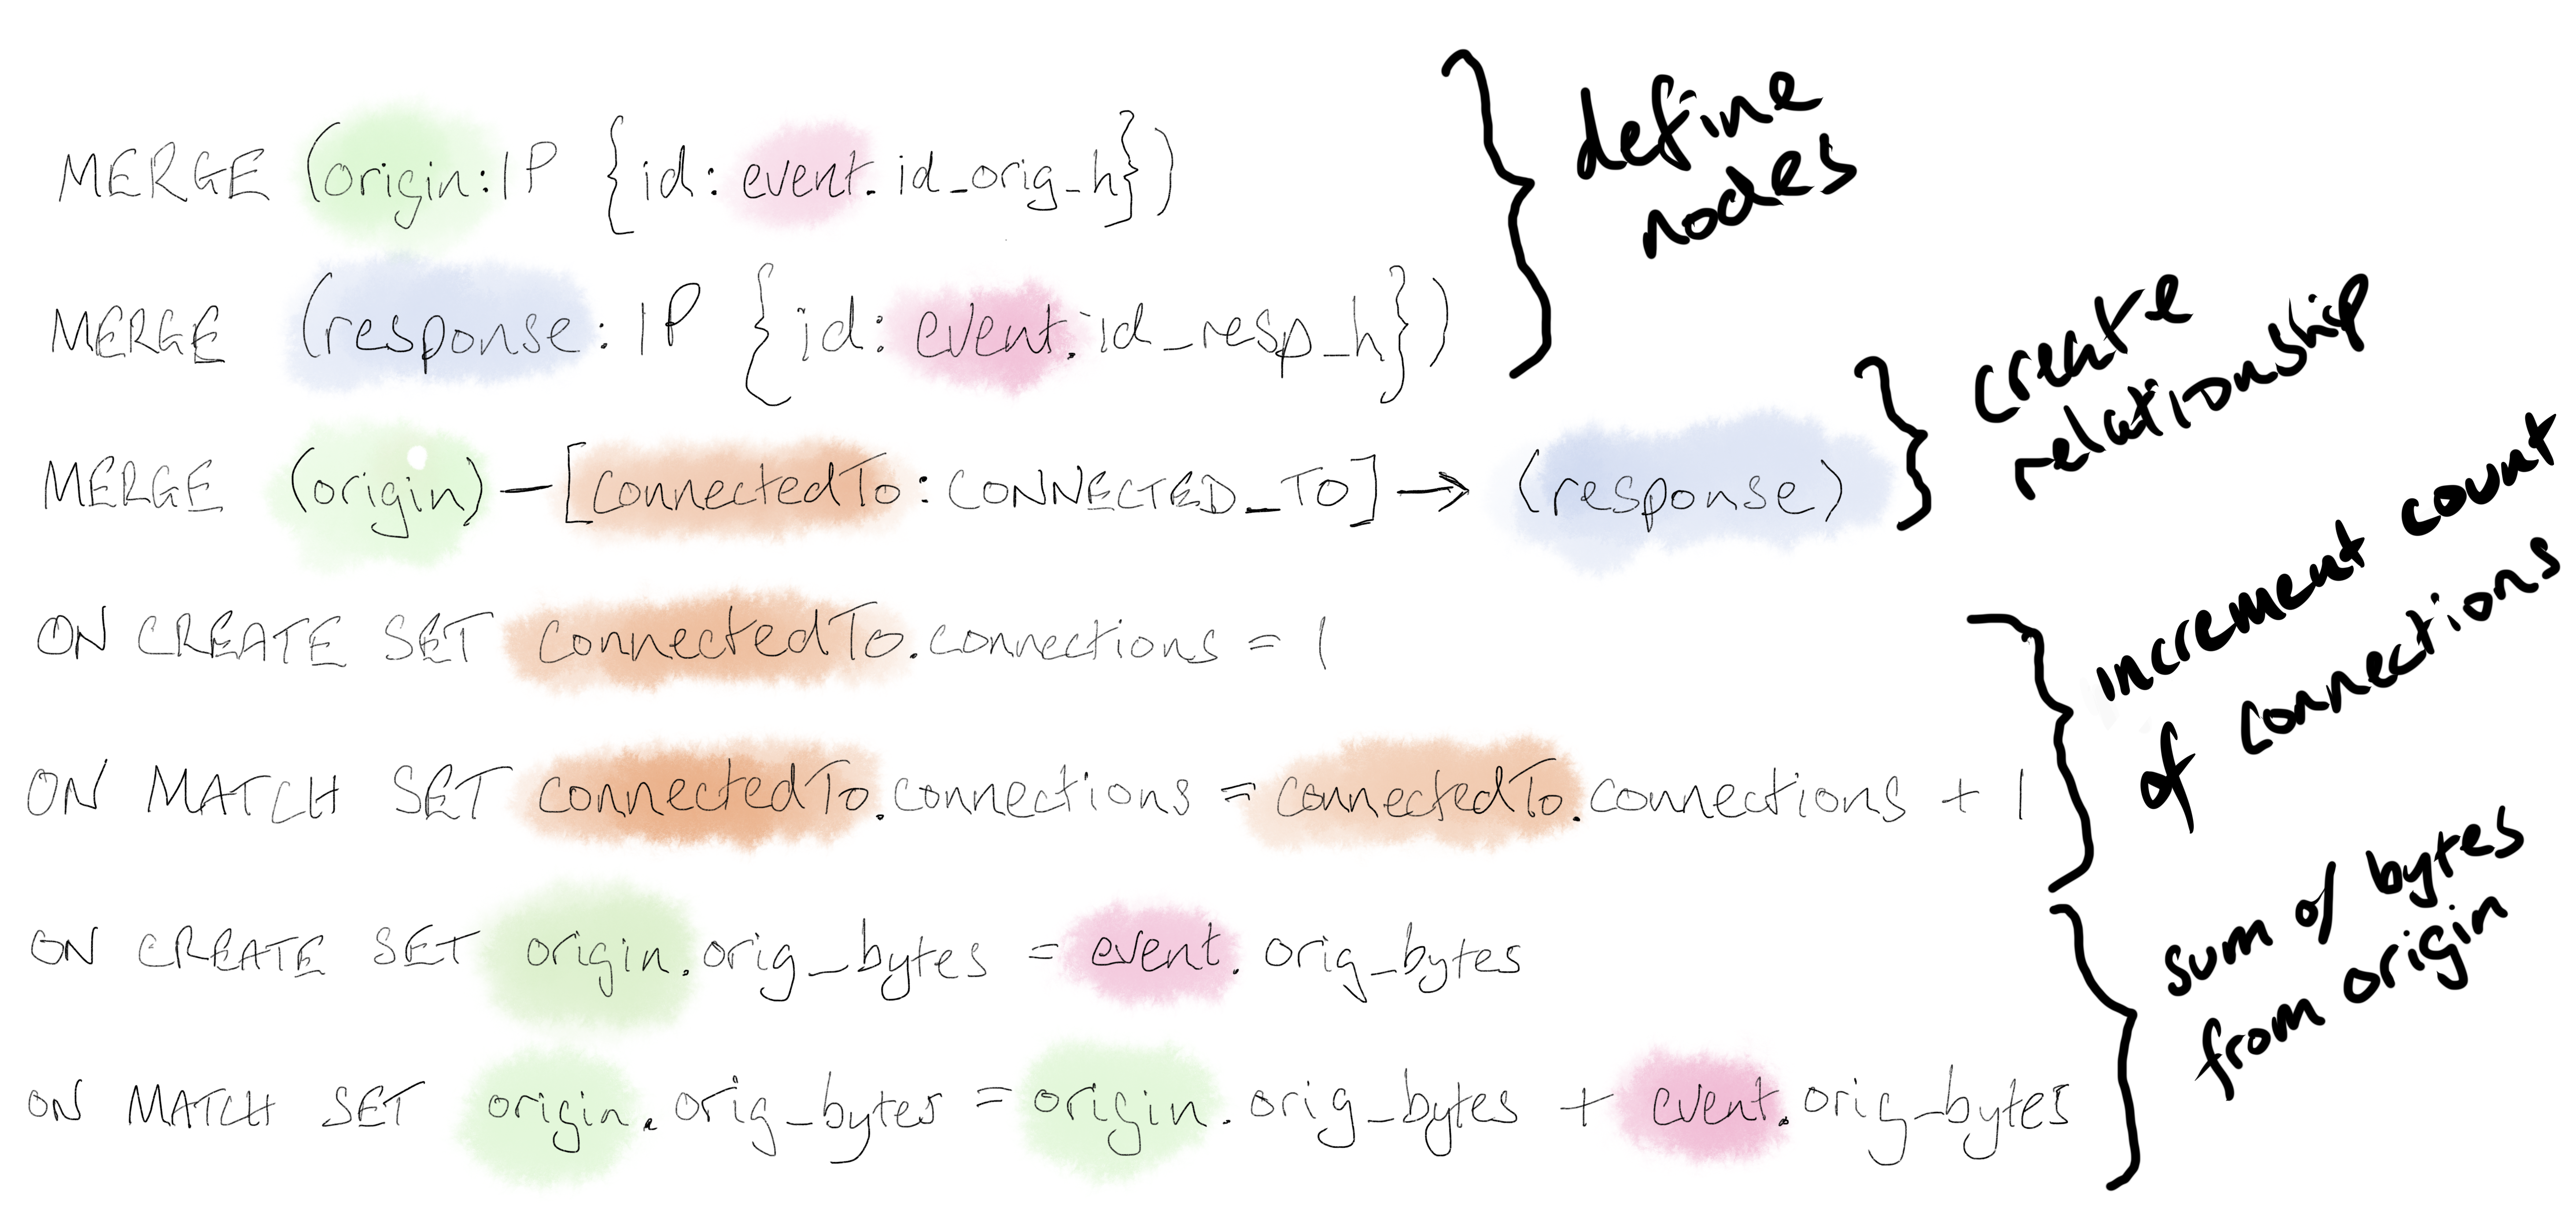 MERGE (origin:IP {id: event.id_orig_h})
MERGE (response: IP {id: event.id_resp_h})
MERGE (origin)-[connectedTo:CONNECTED_TO]→(response)
ON CREATE SET connectedTo.connections = 1
ON MATCH SET connectedTo.connections = connectedTo.connections + 1
ON CREATE SET origin.orig_bytes = event.orig_bytes
ON MATCH SET origin.orig_bytes = origin.orig_bytes + event.orig_bytes
define
nodes
create
relationship
increment count
of connections
sum of bytes
from origin